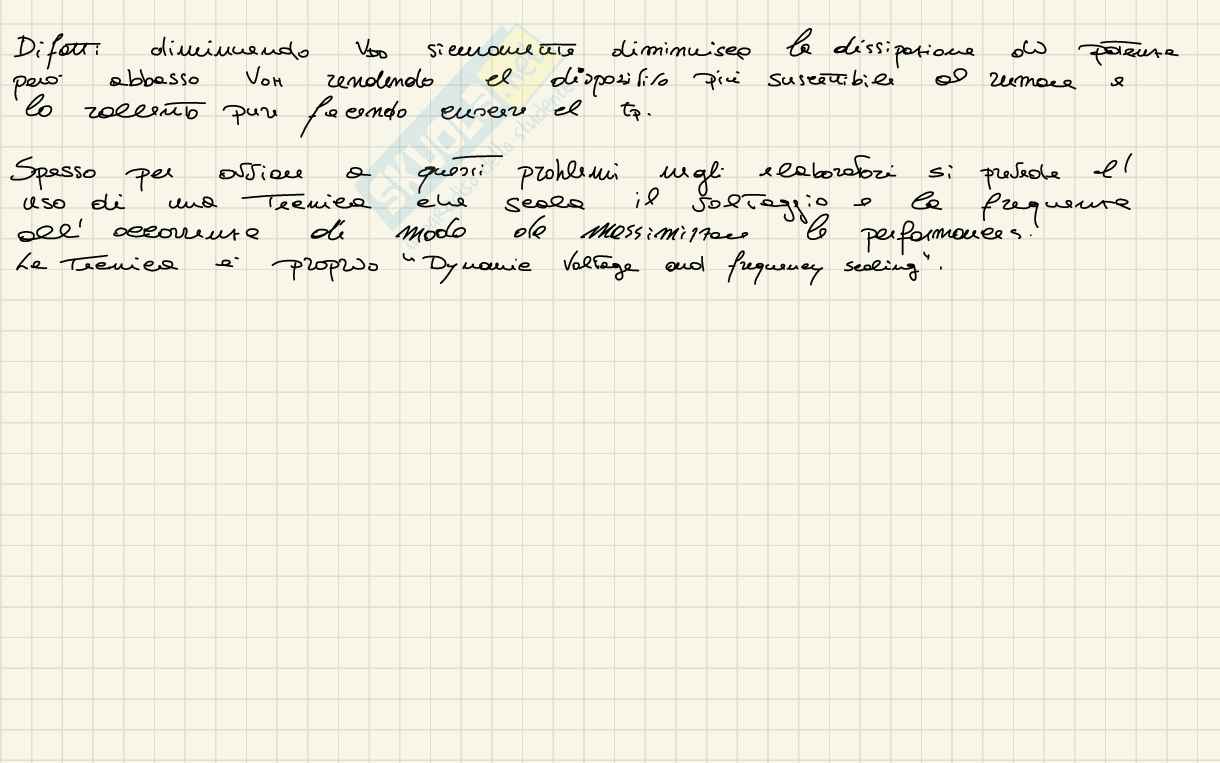 Difatti diminuendo VDD sicuramente diminuisco la dissipazione di potenza
però abbasso VOH rendendo il dispositivo più suscettibile al rumore e
lo rallento pure facendo crescere il tp.
Spesso per ovviare a questi problemi negli elaboratori si prevede l'
uso di una Tecnica che scala il voltaggio e la frequenza
all' occorrenza di modo da massimizzare le performances.
La Tecnica è proprio "Dynamic Voltage and frequency scaling".
SKUOLA.net